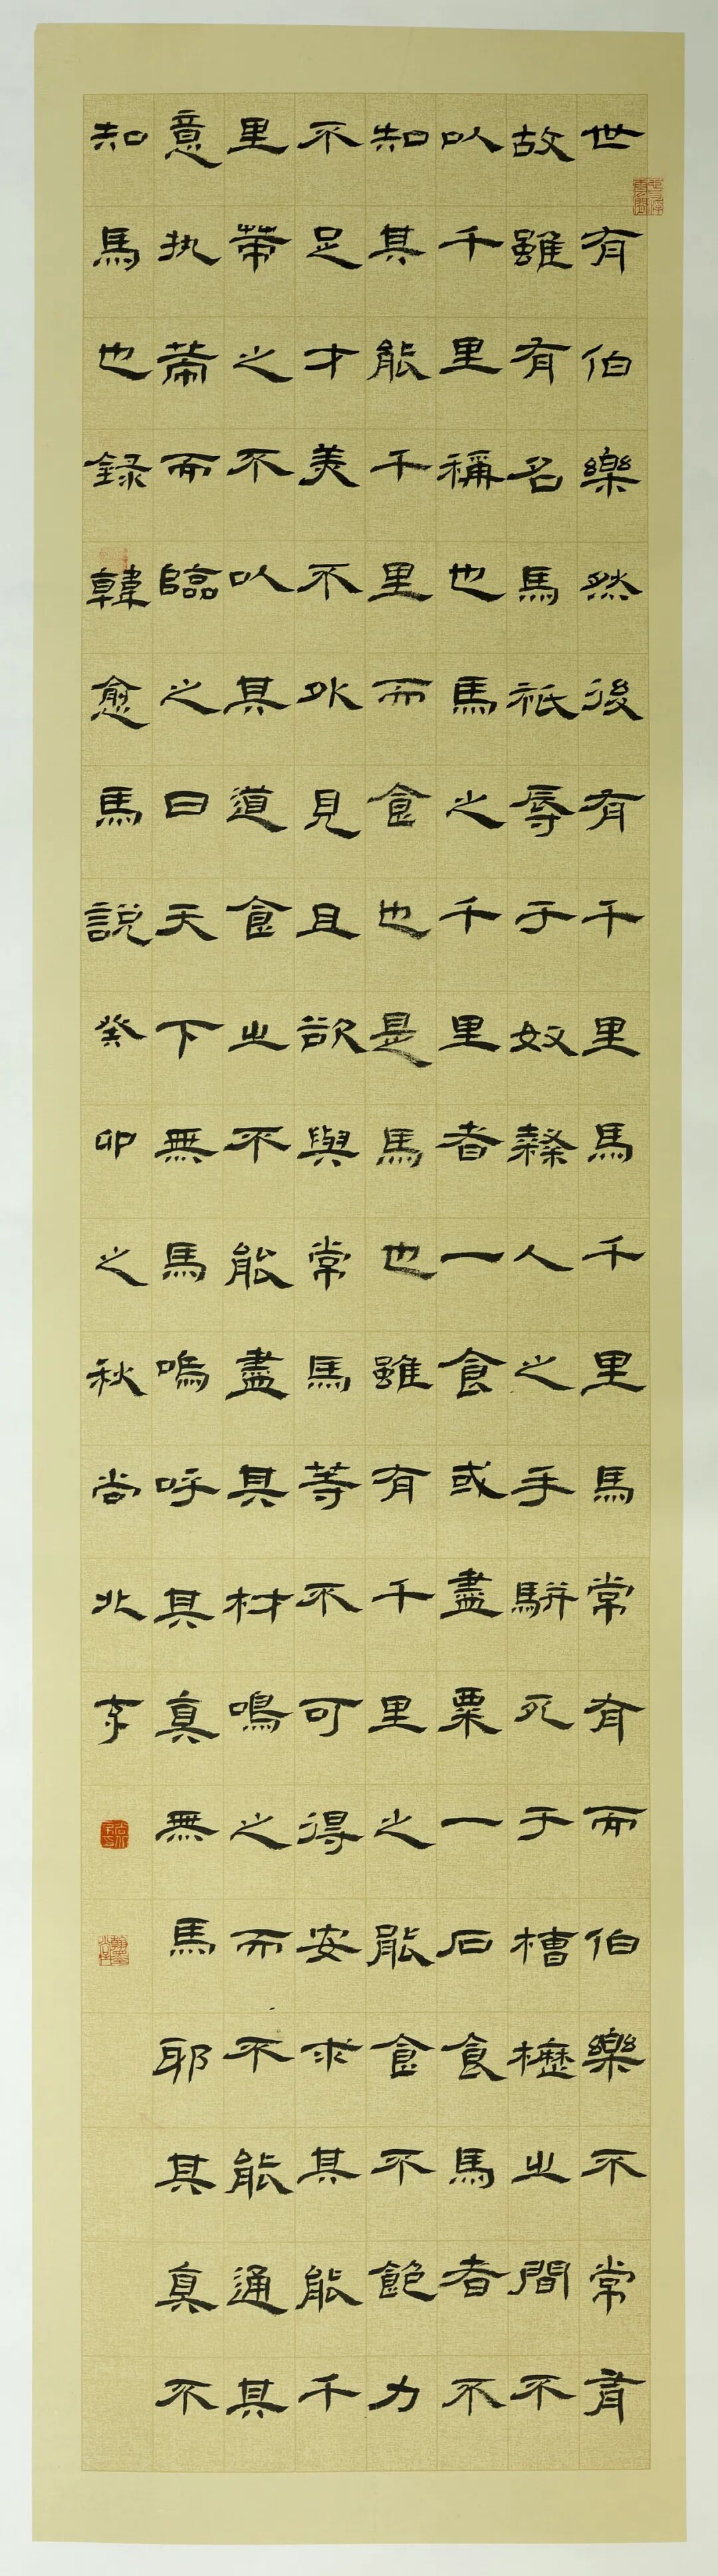 世有伯樂然後有千里馬千里馬常有而伯樂不常有
故雖有名馬祇辱于奴隸人之手駢死于槽櫪之間不
以千里稱也馬之千里者一食或盡粟一石食馬者不
知其能千里而食也是馬也雖有千里之能食不飽力
不足才美不外見且欲與常馬等不可得安求其能千
里策之不以其道食之不能盡其材鳴之而不能通其
意执策而臨之曰天下無馬嗚呼其真無馬耶其真不
知馬也録韓愈馬説癸卯之秋尚北